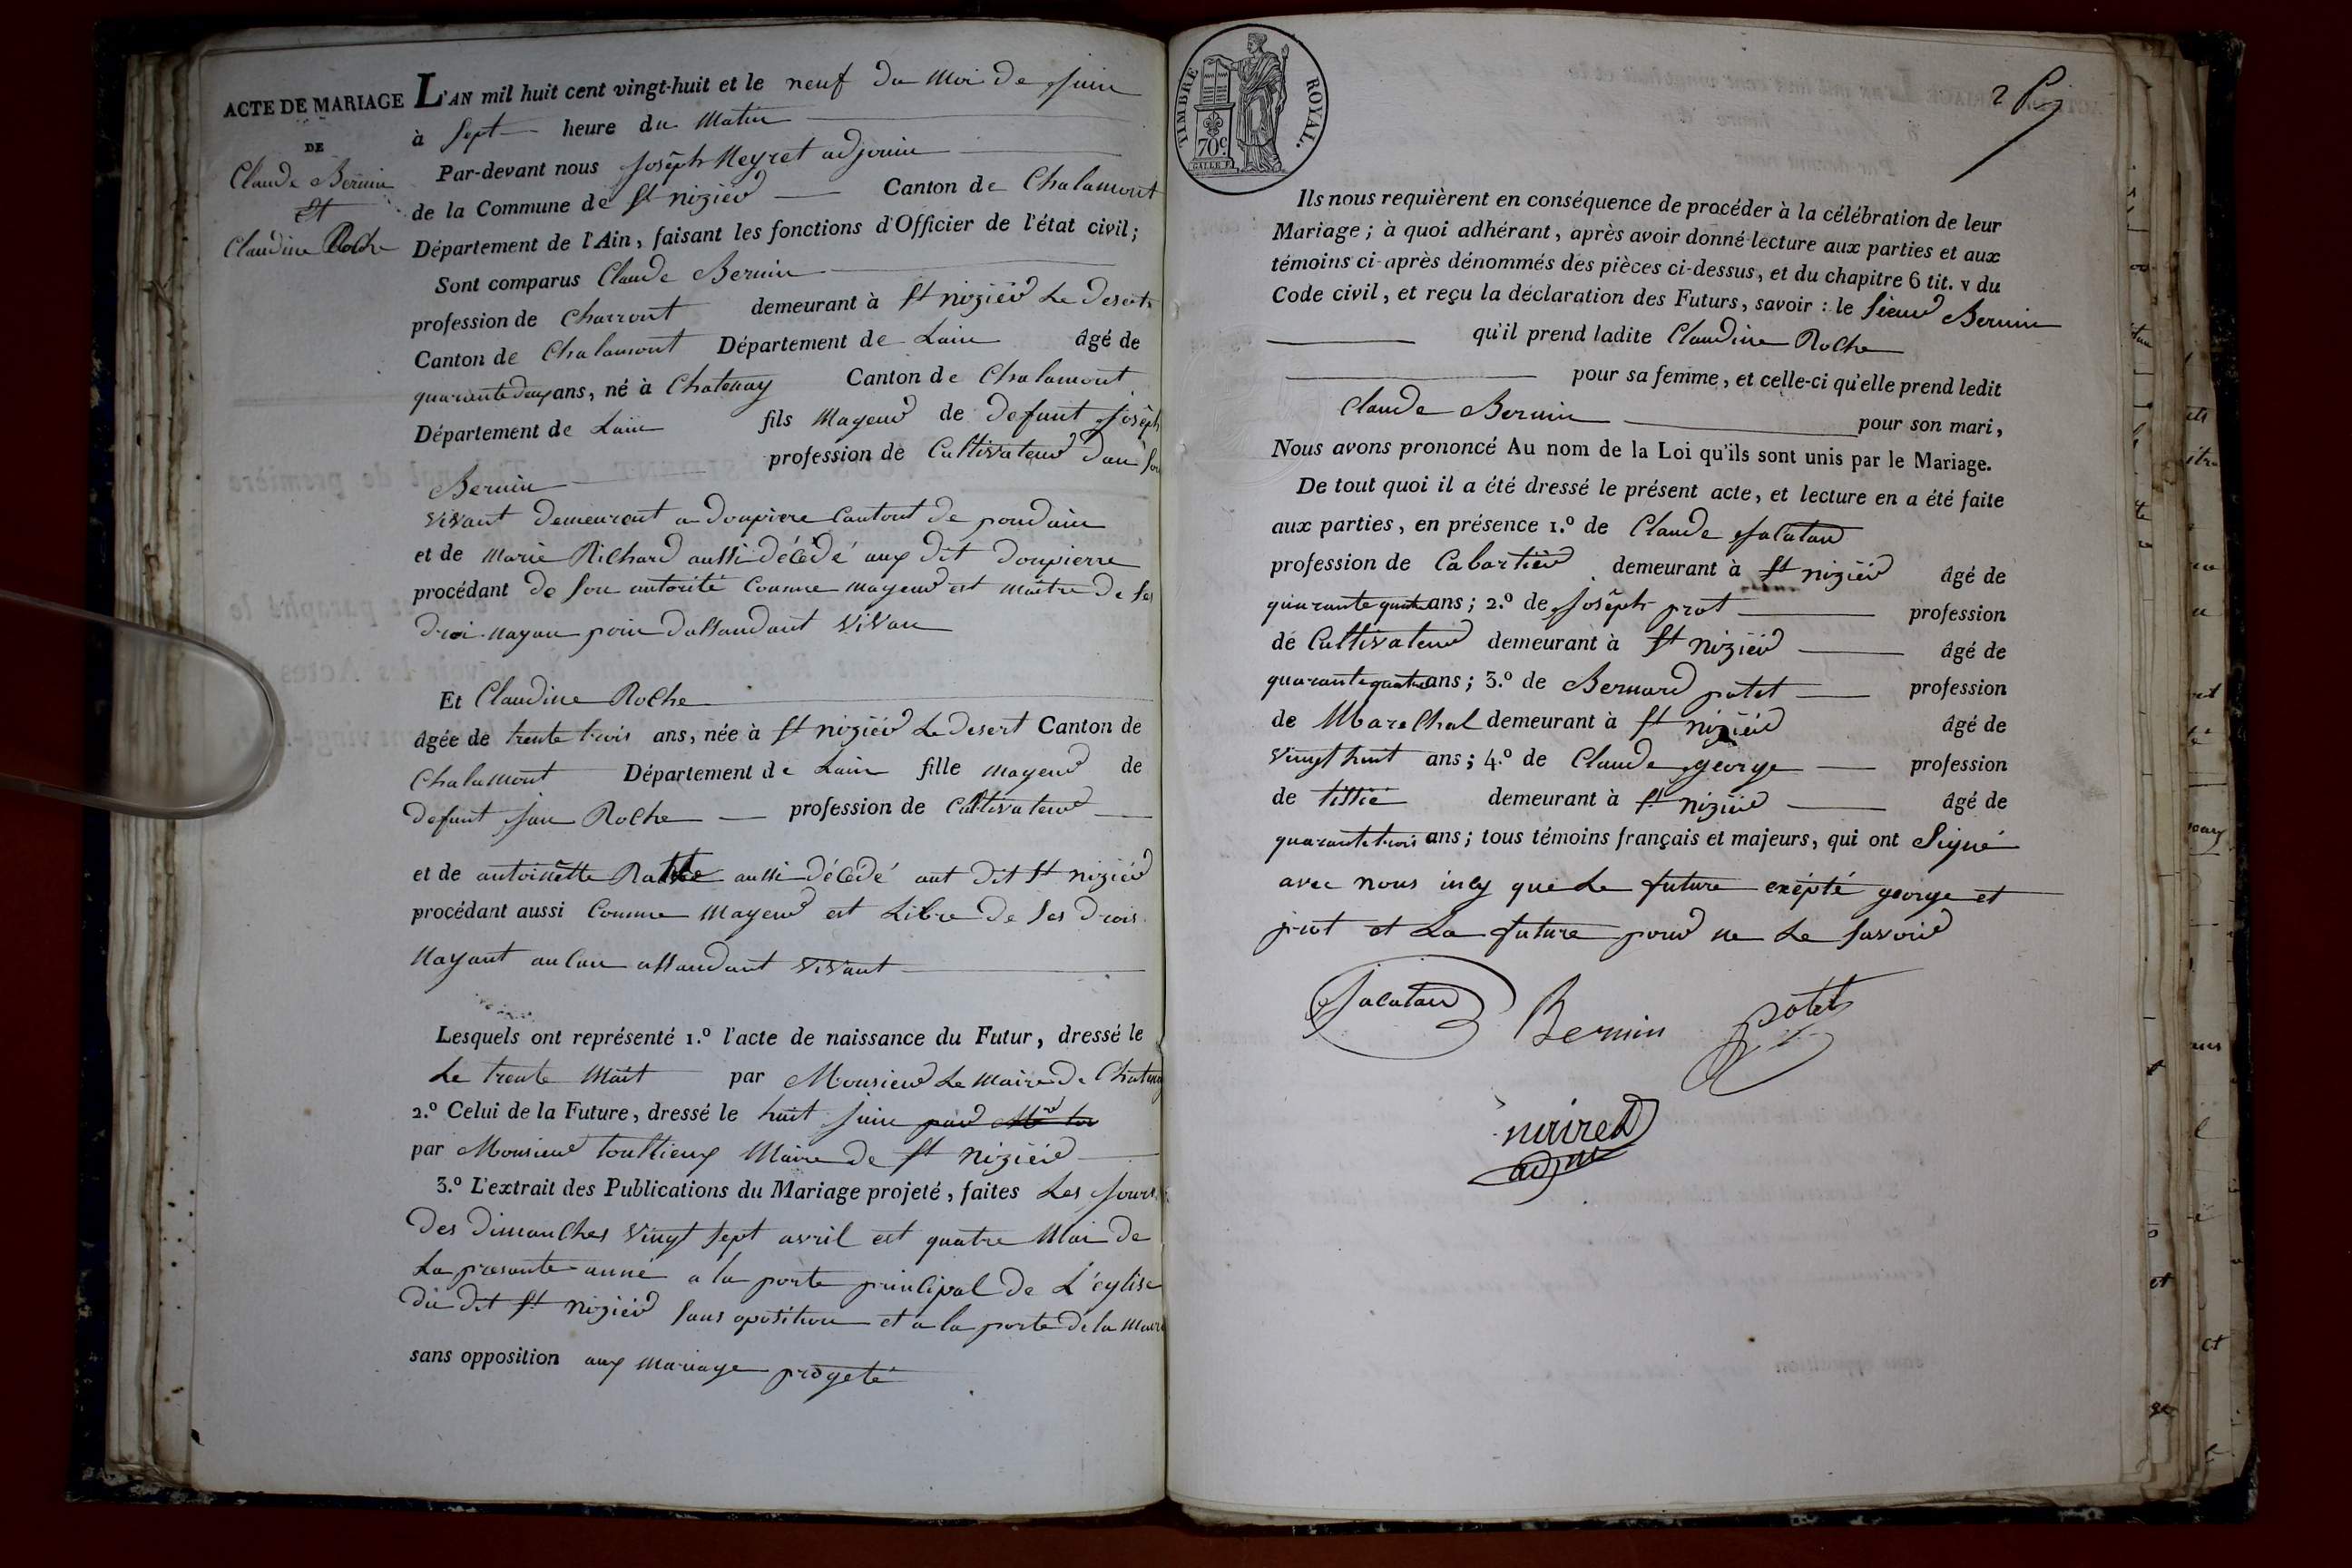 ACTE DE MARIAGE
DE
Claude Bernin
et
Claudine Roche
L'AN mil huit cent vingt-huit et le neuf du Moi de Juin
à Sept heure du Matin
Par-devant nous Joséph Neyret adjoin
de la Commune de St niziér Canton de Chalamont
Département de l'Ain, faisant les fonctions d'Officier de l'état civil;
Sont comparus Claude Bernin
profession de Charront demeurant à St niziér Le Desert
Canton de Chalamont Département de Lain âgé de
quarante deux ans, né à Chatenay Canton de Chalamont
Département de Lain fils Mageur de defunt Joséph
Bernin profession de Cultivateur dan son
vivant demeurant a doupiere Cantont de pondain
et de Marie Richard aussi décédé aux dit doupierre
procédant de son autorité Comme mageur est maitre de ses
droi nayan poin dassandant vivan
Et Claudine Roche
âgée de trente trois ans, née à St niziér Le Desert Canton de
Chalamont Département de Lain fille mageur de
defunt Jean Roche profession de Cultivateur
et de antoinètte aussi décédé aut dit St niziér
procédant aussi Comme Mageur est Libre de ses drois
Nayant aucun assandant vivant
Lesquels ont représenté 1.º l'acte de naissance du Futur, dressé le
Le trente Mait par Monsieur Le Maire de Chatenay
2.º Celui de la Future, dressé le huit Juin par Mr Le
par Monsieur toultieux Maire de St niziér
3.º L'extrait des Publications du Mariage projeté, faites Les Jours
des dimanches vingt sept avril est quatre Mai de
La presante anné a la porte principal de L'eglise
du dit St niziér sans oposition et a la porte de la Mairie
sans opposition aux mariage progeté
TIMBRE ROYAL.
70c.
2
Ils nous requièrent en conséquence de procéder à la célébration de leur
Mariage; à quoi adhérant, après avoir donné lecture aux parties et aux
témoins ci-après dénommés des pièces ci-dessus, et du chapitre 6 tit. v du
Code civil, et reçu la déclaration des Futurs, savoir : le Sieur Bernin
qu'il prend ladite Claudine Roche
pour sa femme, et celle-ci qu'elle prend ledit
Claude Bernin pour son mari,
Nous avons prononcé Au nom de la Loi qu'ils sont unis par le Mariage.
De tout quoi il a été dressé le présent acte, et lecture en a été faite
aux parties, en présence 1.º de Claude Jacatan
profession de Cabartiér demeurant à St niziér âgé de
quarante quatre ans; 2.º de Joséph prot profession
de Cultivateur demeurant à St niziér âgé de
quarante quatre ans; 3.º de Bernard potet profession
de Marechal demeurant à St niziér âgé de
vingt huit ans; 4.º de Claude george profession
de tissié demeurant à St niziér âgé de
quarante trois ans; tous témoins français et majeurs, qui ont Signé
avec nous incy que Le future exépté george et
prot et La future pour ne Le savoir
Jacatan Bernin potet
neiret
adjoin